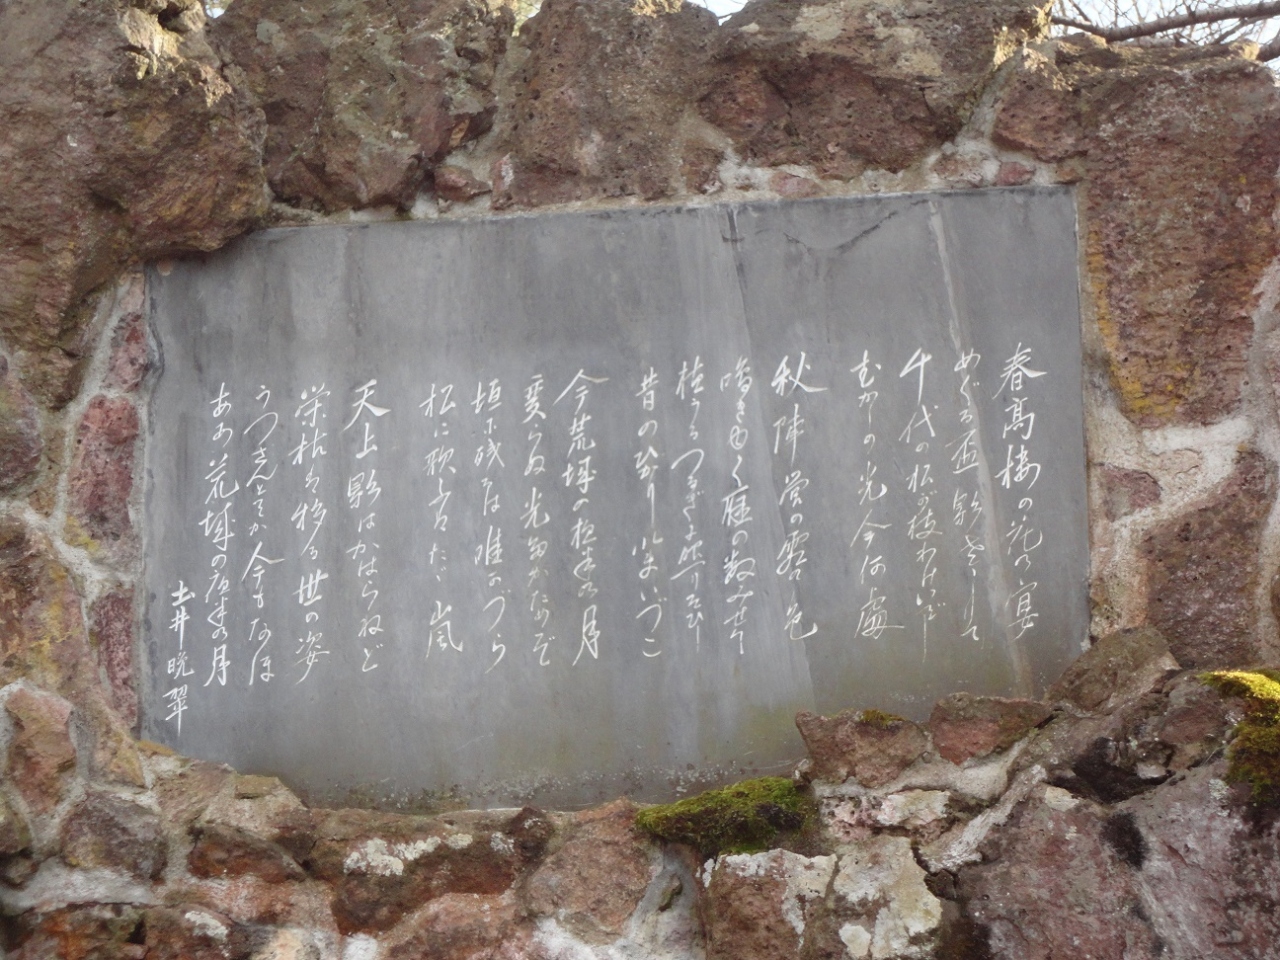 春高楼の花の宴
めぐる盃影さして
千代の松が枝わけいでし
むかしの光今何處
秋陣営の霜の色
鳴きゆく雁の数みせて
植うるつるぎに照りそひし
昔の光りいまいづこ
今荒城の夜半の月
変らぬ光誰がためぞ
垣に残るは唯かづら
松に歌ふはたゞ嵐
天上影はかはらねど
栄枯は移る世の姿
うつさんとてか今もなほ
あゝ荒城の夜半の月
土井晩翠